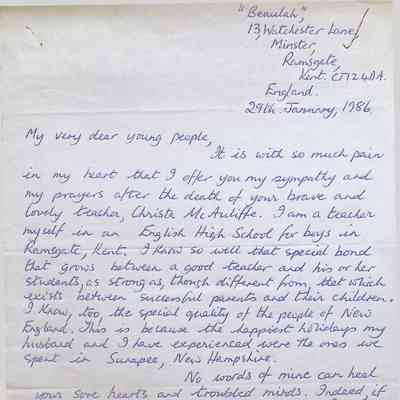 "Beaulah",
13, Watchester Lane,
Minster,
Ramsgate,
Kent. CT12 4DA.
England.
29th January, 1986.
My very dear young people,
It is with so much pain
in my heart that I offer you my sympathy and
my prayers after the death of your brave and
lovely teacher, Christa McAuliffe. I am a teacher
myself in an English High School for boys in
Ramsgate, Kent. I know so well that special bond
that grows between a good teacher and his or her
students, as strong as, though different from, that which
exists between successful parents and their children.
I know, too, the special quality of the people of New
England. This is because the happiest holidays my
husband and I have experienced were the ones we
spent in Sunapee, New Hampshire.
No words of mine can heal
your sore hearts and troubled minds. Indeed, if